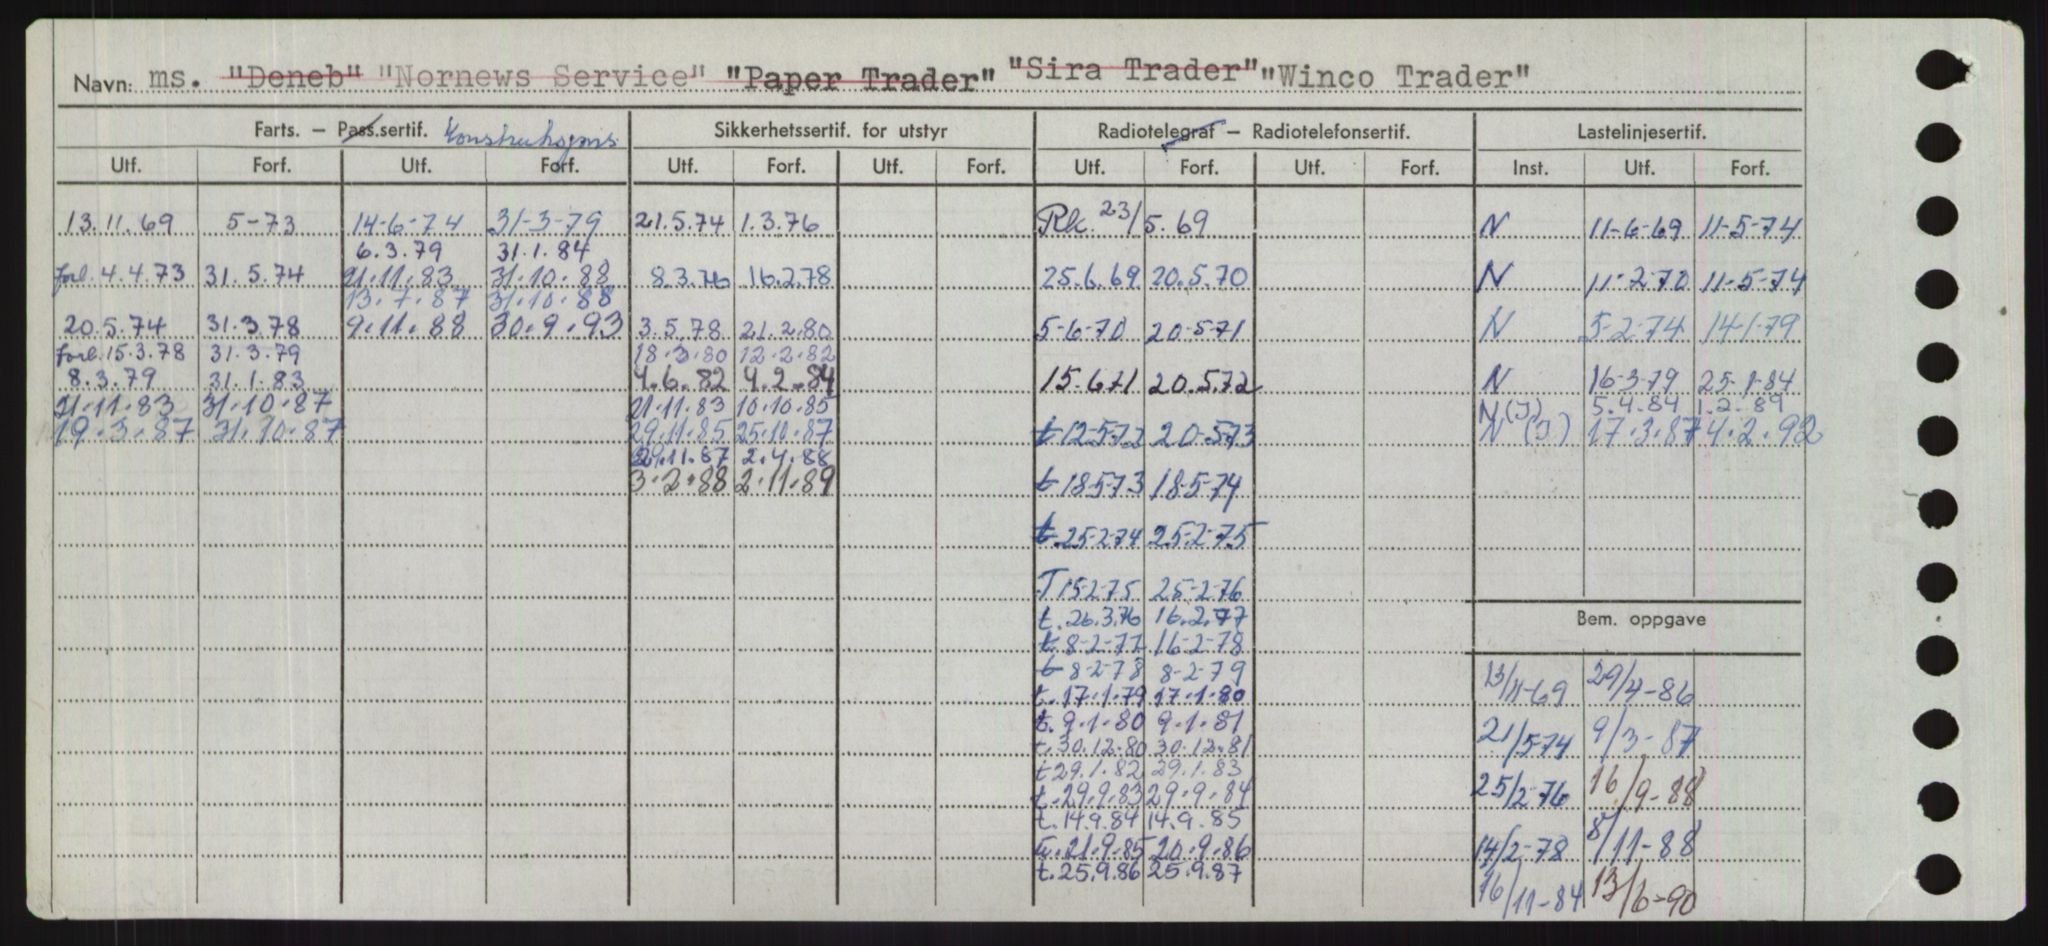 Navn: ms. "Deneb" "Nornews Service" "Paper Trader" "Sira Trader" "Winco Trader"
Farts. – Pass.sertif. Konstruksjons Sikkerhetssertif. for utstyr Radiotelegraf – Radiotelefonsertif. Lastelinjesertif.
Utf. Forf. Utf. Forf. Utf. Forf. Utf. Forf. Utf. Forf. Utf. Forf. Inst. Utf. Forf.
13.11.69 5-73 14-6-74 31-3-79 21.5.74 1.3.76 Rk. 23/5.69 N 11-6-69 11-5-74
6.3.79 31.1.84
forl. 4.4.73 31.5.74 21.11.83 31.10.88 8.3.76 16.2.78 25.6.69 20.5.70 N 11-2-70 11-5-74
13.7.87 31.10.88
20.5.74 31.3.78 9.11.88 30.9.93 3.5.78 21.2.80 5-6-70 20-5-71 N 5-2-74 14-1-79
forl. 15.3.78 31.3.79 18.3.80 12.2.82
8.3.79 31.1.83 4.6.82 4.2.84 15.6.71 20.5.72 N 16-3-79 25-1-84
21.11.83 31.10.87 21.11.83 10.10.85 N(J) 5.4.84 1.2.89
19.3.87 31.10.87 29.11.85 25.10.87 t 12-5-72 20-5-73 N (J) 17.3.87 4.2.92
29.11.87 2.4.88
3.2.88 2.11.89 t 18-5-73 18-5-74
t. 25-2-74 25-2-75
T 15-2-75 25-2-76
Bem. oppgave
t. 26.3.76 16.2.77
t 8-2-77 16-2-78
t 8-2-78 8-2-79 13/11-69 29/4-86
t. 17.1.79 17.1.80
t. 9.1.80 9.1.81 21/5-74 9/3-87
t. 30.12.80 30.12.81
t 29.1.82 29.1.83 25/2-76 16/9-88
t. 29.9.83 29.9.84
t. 14.9.84 14.9.85
t. 21.9.85 20.9.86 14/2-78 8/11-88
t. 25.9.86 25.9.87
16/11-84 13/6-90